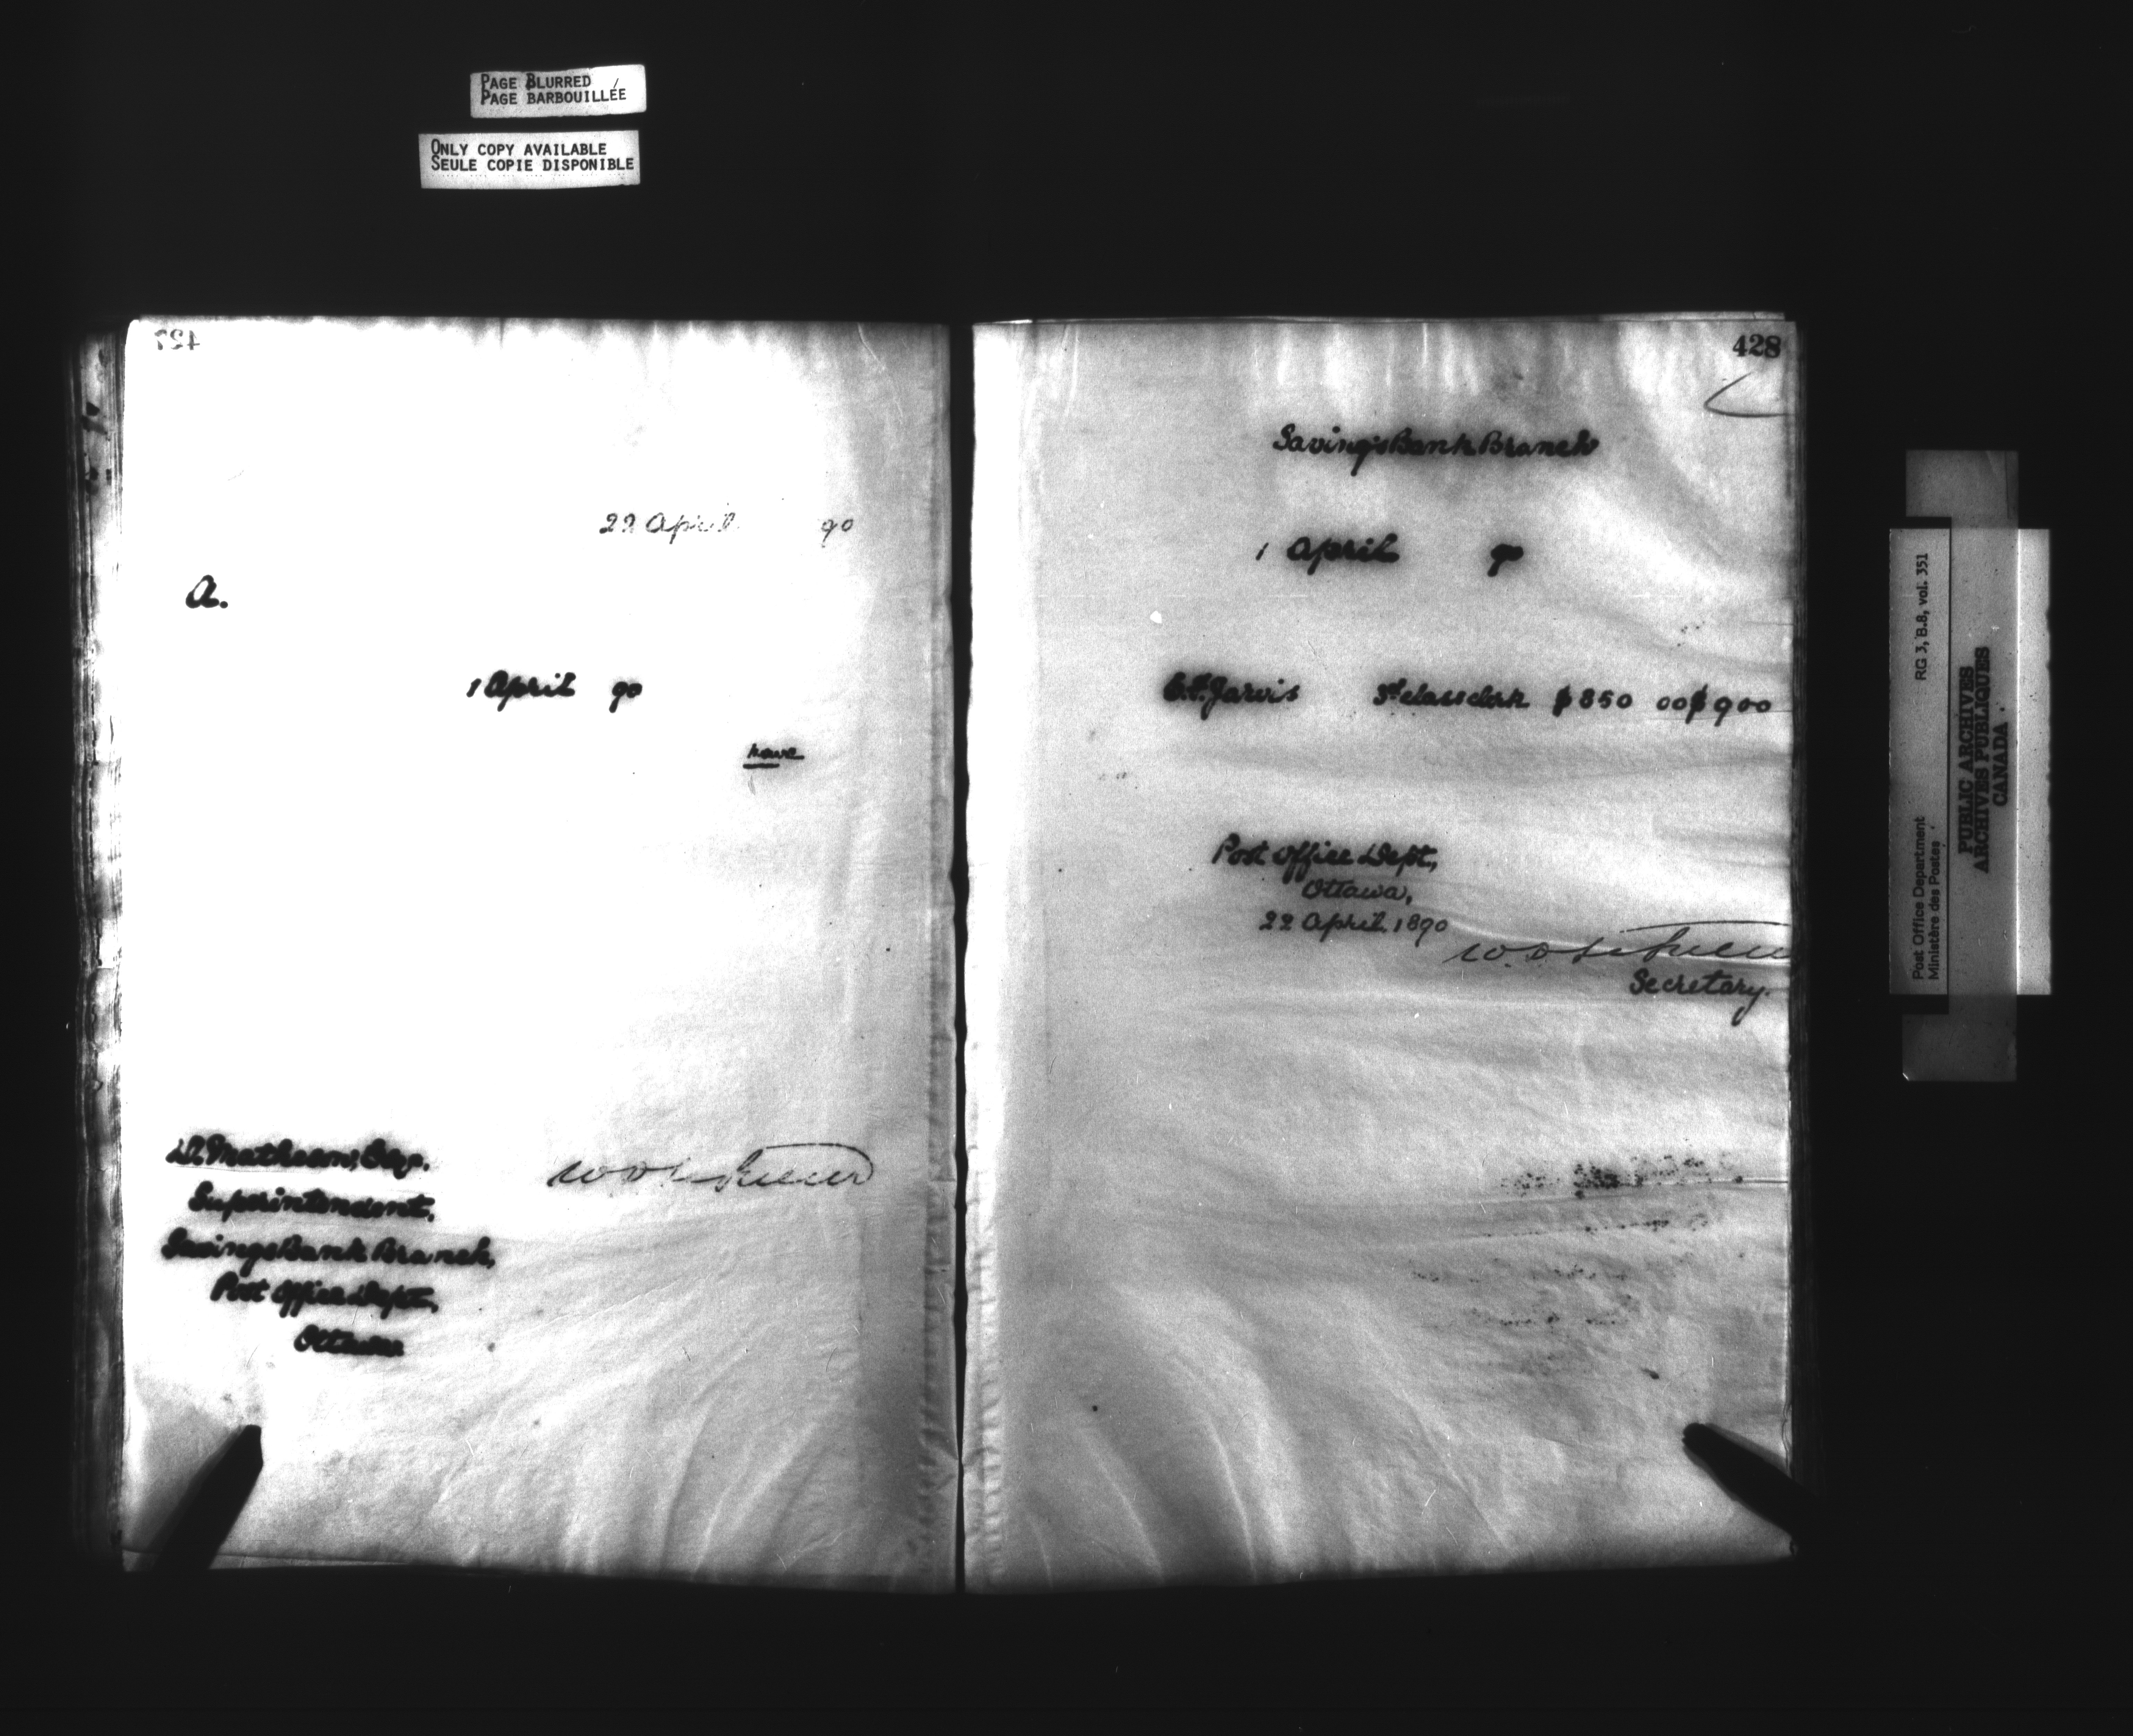 PAGE BLURRED
PAGE BARBOUILLÉE
ONLY COPY AVAILABLE
SEULE COPIE DISPONIBLE
427
22 April 90
A.
1 April 90
have
D. Matheson, Esq.
Superintendent,
Savings Bank Branch,
Post Office Dept,
Ottawa.
428
Savings Bank Branch
1 April 90
Jarvis 3rd class clerk $850 00 $900
Post Office Dept,
Ottawa,
22 April. 1890
Secretary.
Post Office Department
Ministère des Postes
RG 3, B.8, vol. 351
PUBLIC ARCHIVES
ARCHIVES PUBLIQUES
CANADA